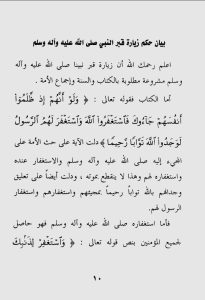 بيان حكم زيارة قبر النبي صلى الله عليه وآله وسلم
اعلم رحمك الله أن زيارة قبر نبينا صلى الله عليه وآله
وسلم مشروعة مطلوبة بالكتاب والسنة وإجماع الأمة .
أما الكتاب فقوله تعالى : ﴿ وَلَوْ أَنَّهُمْ إِذ ظَّلَمُوٓا۟
أَنفُسَهُمْ جَآءُوكَ فَٱسْتَغْفَرُوا۟ ٱللَّهَ وَٱسْتَغْفَرَ لَهُمُ ٱلرَّسُولُ
لَوَجَدُوا۟ ٱللَّهَ تَوَّابًا رَّحِيمًا ﴾ دلت الآية على حث الأمة على
المجيء إليه صلى الله عليه وآله وسلم والاستغفار عنده
واستغفاره لهم وهذا لا ينقطع بموته ، ودلت أيضاً على تعليق
وجدانهم بالله تواباً رحيماً بمجيئهم واستغفارهم واستغفار
الرسول لهم .
فأما استغفاره صلى الله عليه وآله وسلم فهو حاصل
لجميع المؤمنين بنص قوله تعالى : ﴿ وَٱسْتَغْفِرْ لِذَنۢبِكَ
١٠